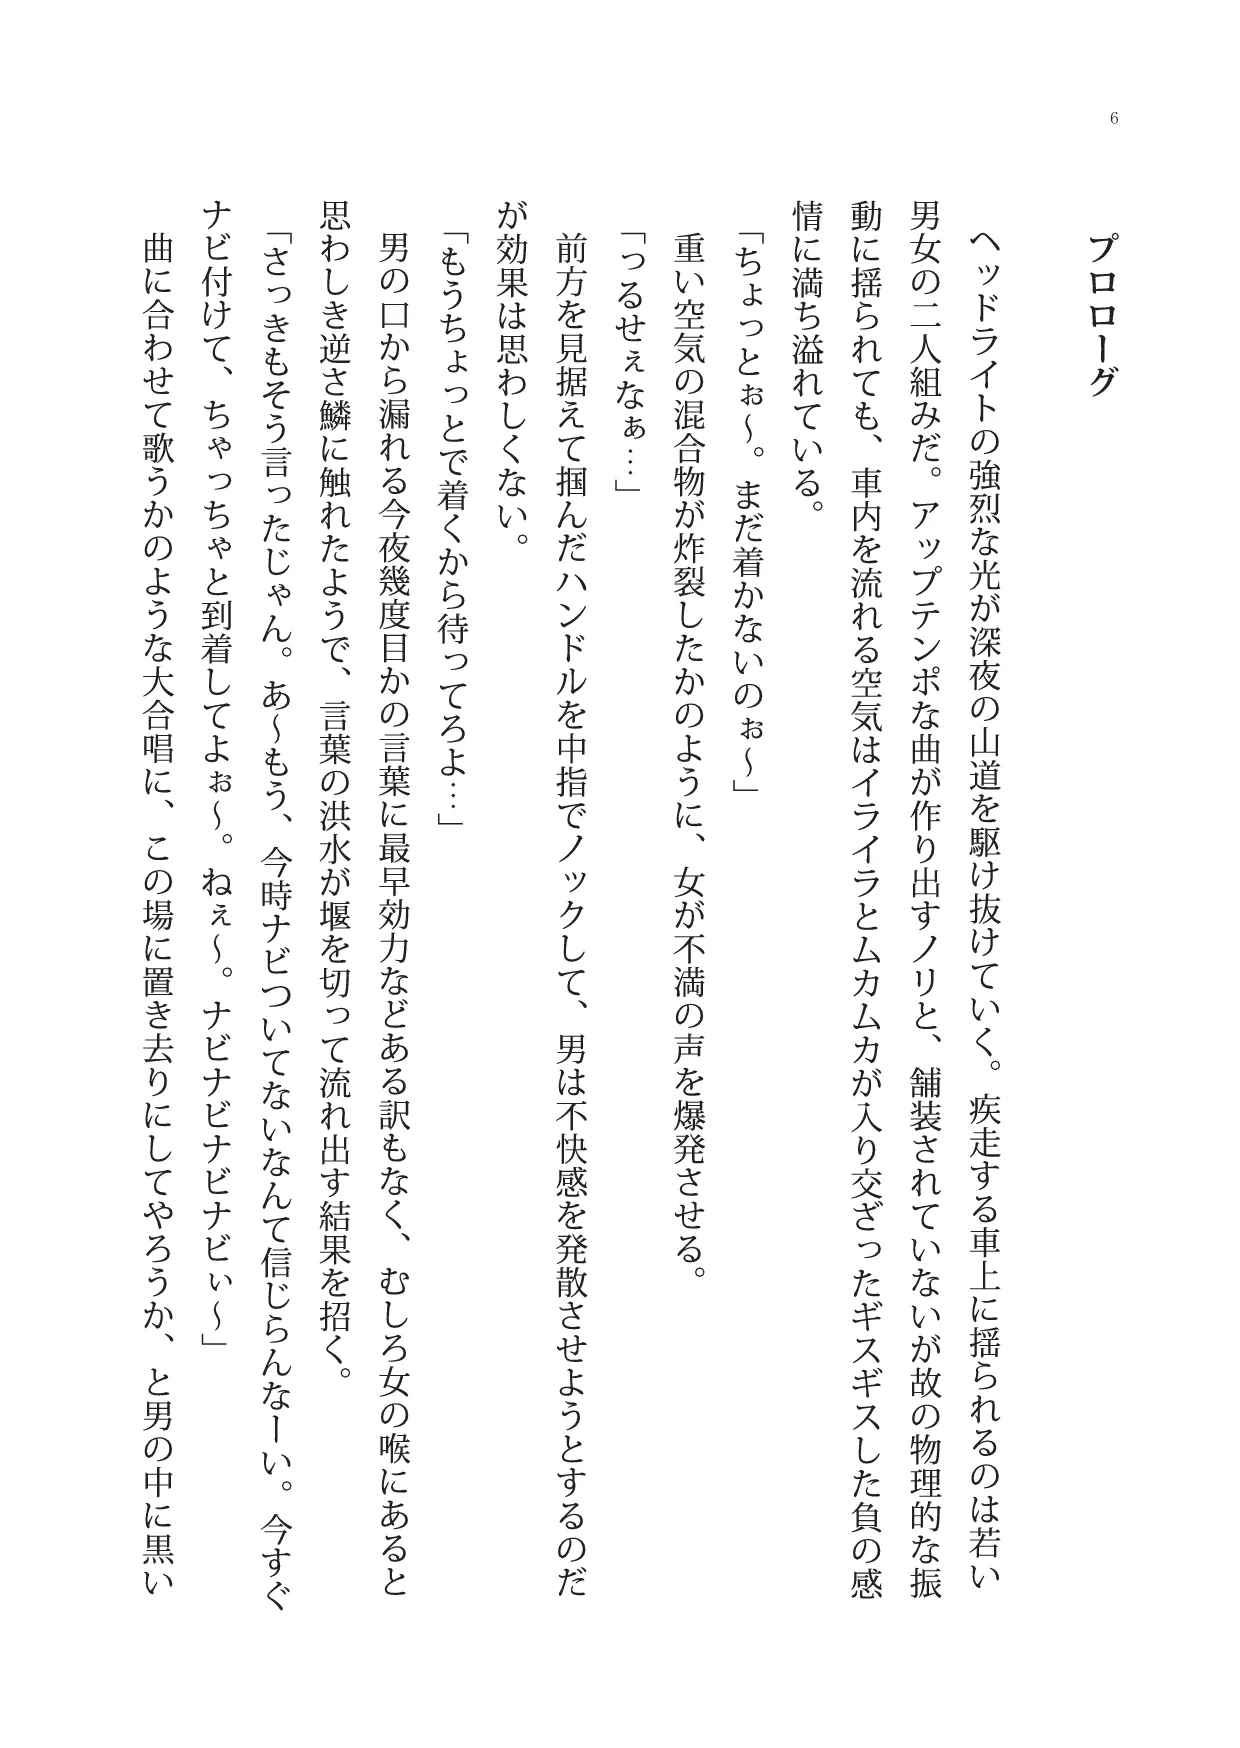 6
プロローグ
　ヘッドライトの強烈な光が深夜の山道を駆け抜けていく。疾走する車上に揺られるのは若い
男女の二人組みだ。アップテンポな曲が作り出すノリと、舗装されていないが故の物理的な振
動に揺られても、車内を流れる空気はイライラとムカムカが入り交ざったギスギスした負の感
情に満ち溢れている。
「ちょっとぉ〜。まだ着かないのぉ〜」
　重い空気の混合物が炸裂したかのように、女が不満の声を爆発させる。
「つるせぇなぁ…」
　前方を見据えて掴んだハンドルを中指でノックして、男は不快感を発散させようとするのだ
が効果は思わしくない。
「もうちょっとで着くから待ってろよ…」
　男の口から漏れる今夜幾度目かの言葉に最早効力などある訳もなく、むしろ女の喉にあると
思わしき逆さ鱗に触れたようで、言葉の洪水が堰を切って流れ出す結果を招く。
「さっきもそう言ったじゃん。あ〜もう、今時ナビついてないなんて信じらんなーい。今すぐ
ナビ付けて、ちゃっちゃと到着してよぉ〜。ねぇ〜。ナビナビナビナビぃ〜」
　曲に合わせて歌うかのような大合唱に、この場に置き去りにしてやろうか、と男の中に黒い